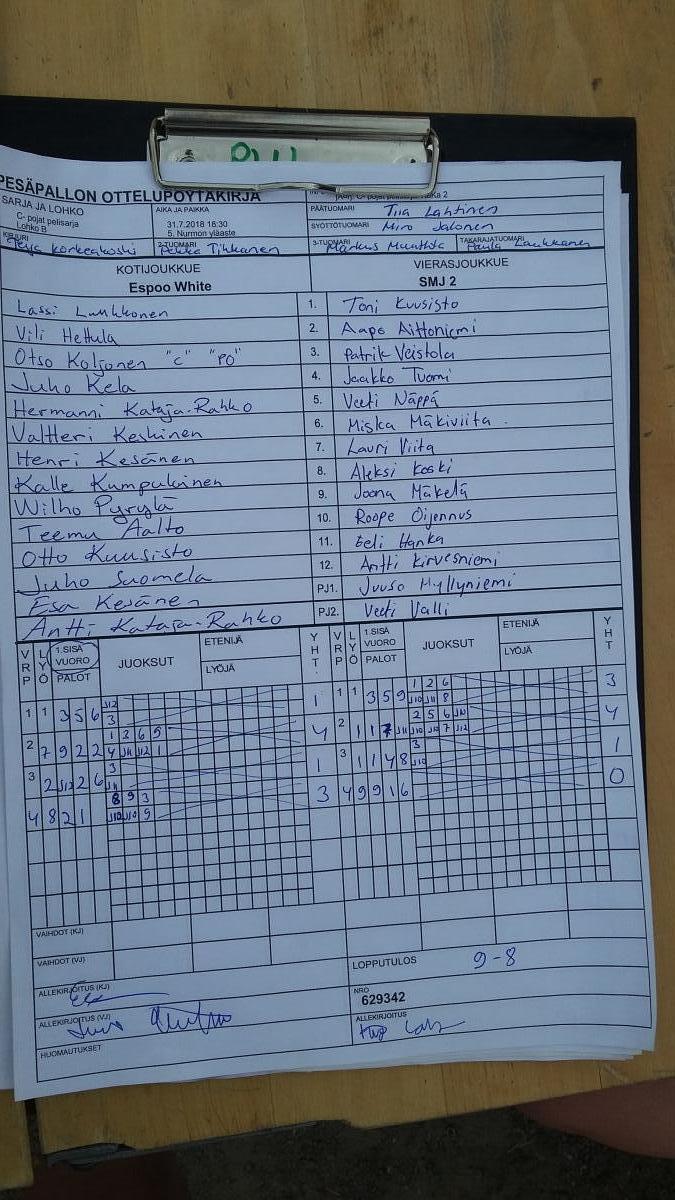 PESÄPALLON OTTELUPÖYTÄKIRJA
SARJA JA LOHKO
C- pojat pelisarja
Lohko B
AIKA JA PAIKKA
31.7.2018 16:30
5. Nurmon yläaste
PÄÄTUOMARI Tiia Lahtinen
SYÖTTÖTUOMARI Miro Jalonen
KIRJURI Teija Korkeakoski
2-TUOMARI Pekka Tihkanen
3-TUOMARI Markus
TAKARAJATUOMARI Paula Laukkanen
KOTIJOUKKUE VIERASJOUKKUE
Espoo White SMJ 2
Lassi Luukkonen 1. Toni Kuusisto
Vili Hettula 2. Aapo Aittoniemi
Otso Koljonen "C" "PO" 3. Patrik Veistola
Juho Kela 4. Jaakko Tuomi
Hermanni Kataja-Rahko 5. Veeti Näppä
Valtteri Keskinen 6. Miska Mäkiviita
Henri Kesänen 7. Lauri Viita
Kalle Kumpulainen 8. Aleksi Koski
Wilho Pyrylä 9. Joona Mäkelä
Teemu Aalto 10. Roope Oijennus
Otto Kuusisto 11. Eeli Hanka
Juho Suomela 12. Antti Kirvesniemi
Esa Kesänen PJ1. Juuso Hyllyniemi
Antti Kataja-Rahko PJ2. Veeti Valli
VRP LYÖ 1.SISÄ VUORO PALOT JUOKSUT ETENIJÄ LYÖJÄ YHT. VRP LYÖ 1.SISÄ VUORO PALOT JUOKSUT ETENIJÄ LYÖJÄ YHT
1 1 3 5 6 J12 1 1 1 3 5 9 1 2 6 3
3 J10 J11 8
2 7 9 2 2 1 3 6 5 4 2 1 1 7 J11 2 5 6 J10 4
4 J11 J12 1 J10 J10 7 J12
3 2 J12 2 6 3 1 3 1 1 4 8 3 1
J11 J10
4 8 2 1 8 9 3 3 4 9 9 1 6 0
J10 J10 9
VAIHDOT (KJ)
VAIHDOT (VJ)
LOPPUTULOS 9-8
ALLEKIRJOITUS (KJ)
NRO
629342
ALLEKIRJOITUS (VJ)
ALLEKIRJOITUS
HUOMAUTUKSET